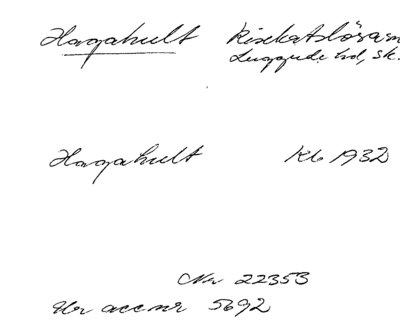 Hagahult Riseketslösa sn
Luggude hd, Sk.
Hagahult Kb 1932
Nr 22353
Ur acc nr 5692